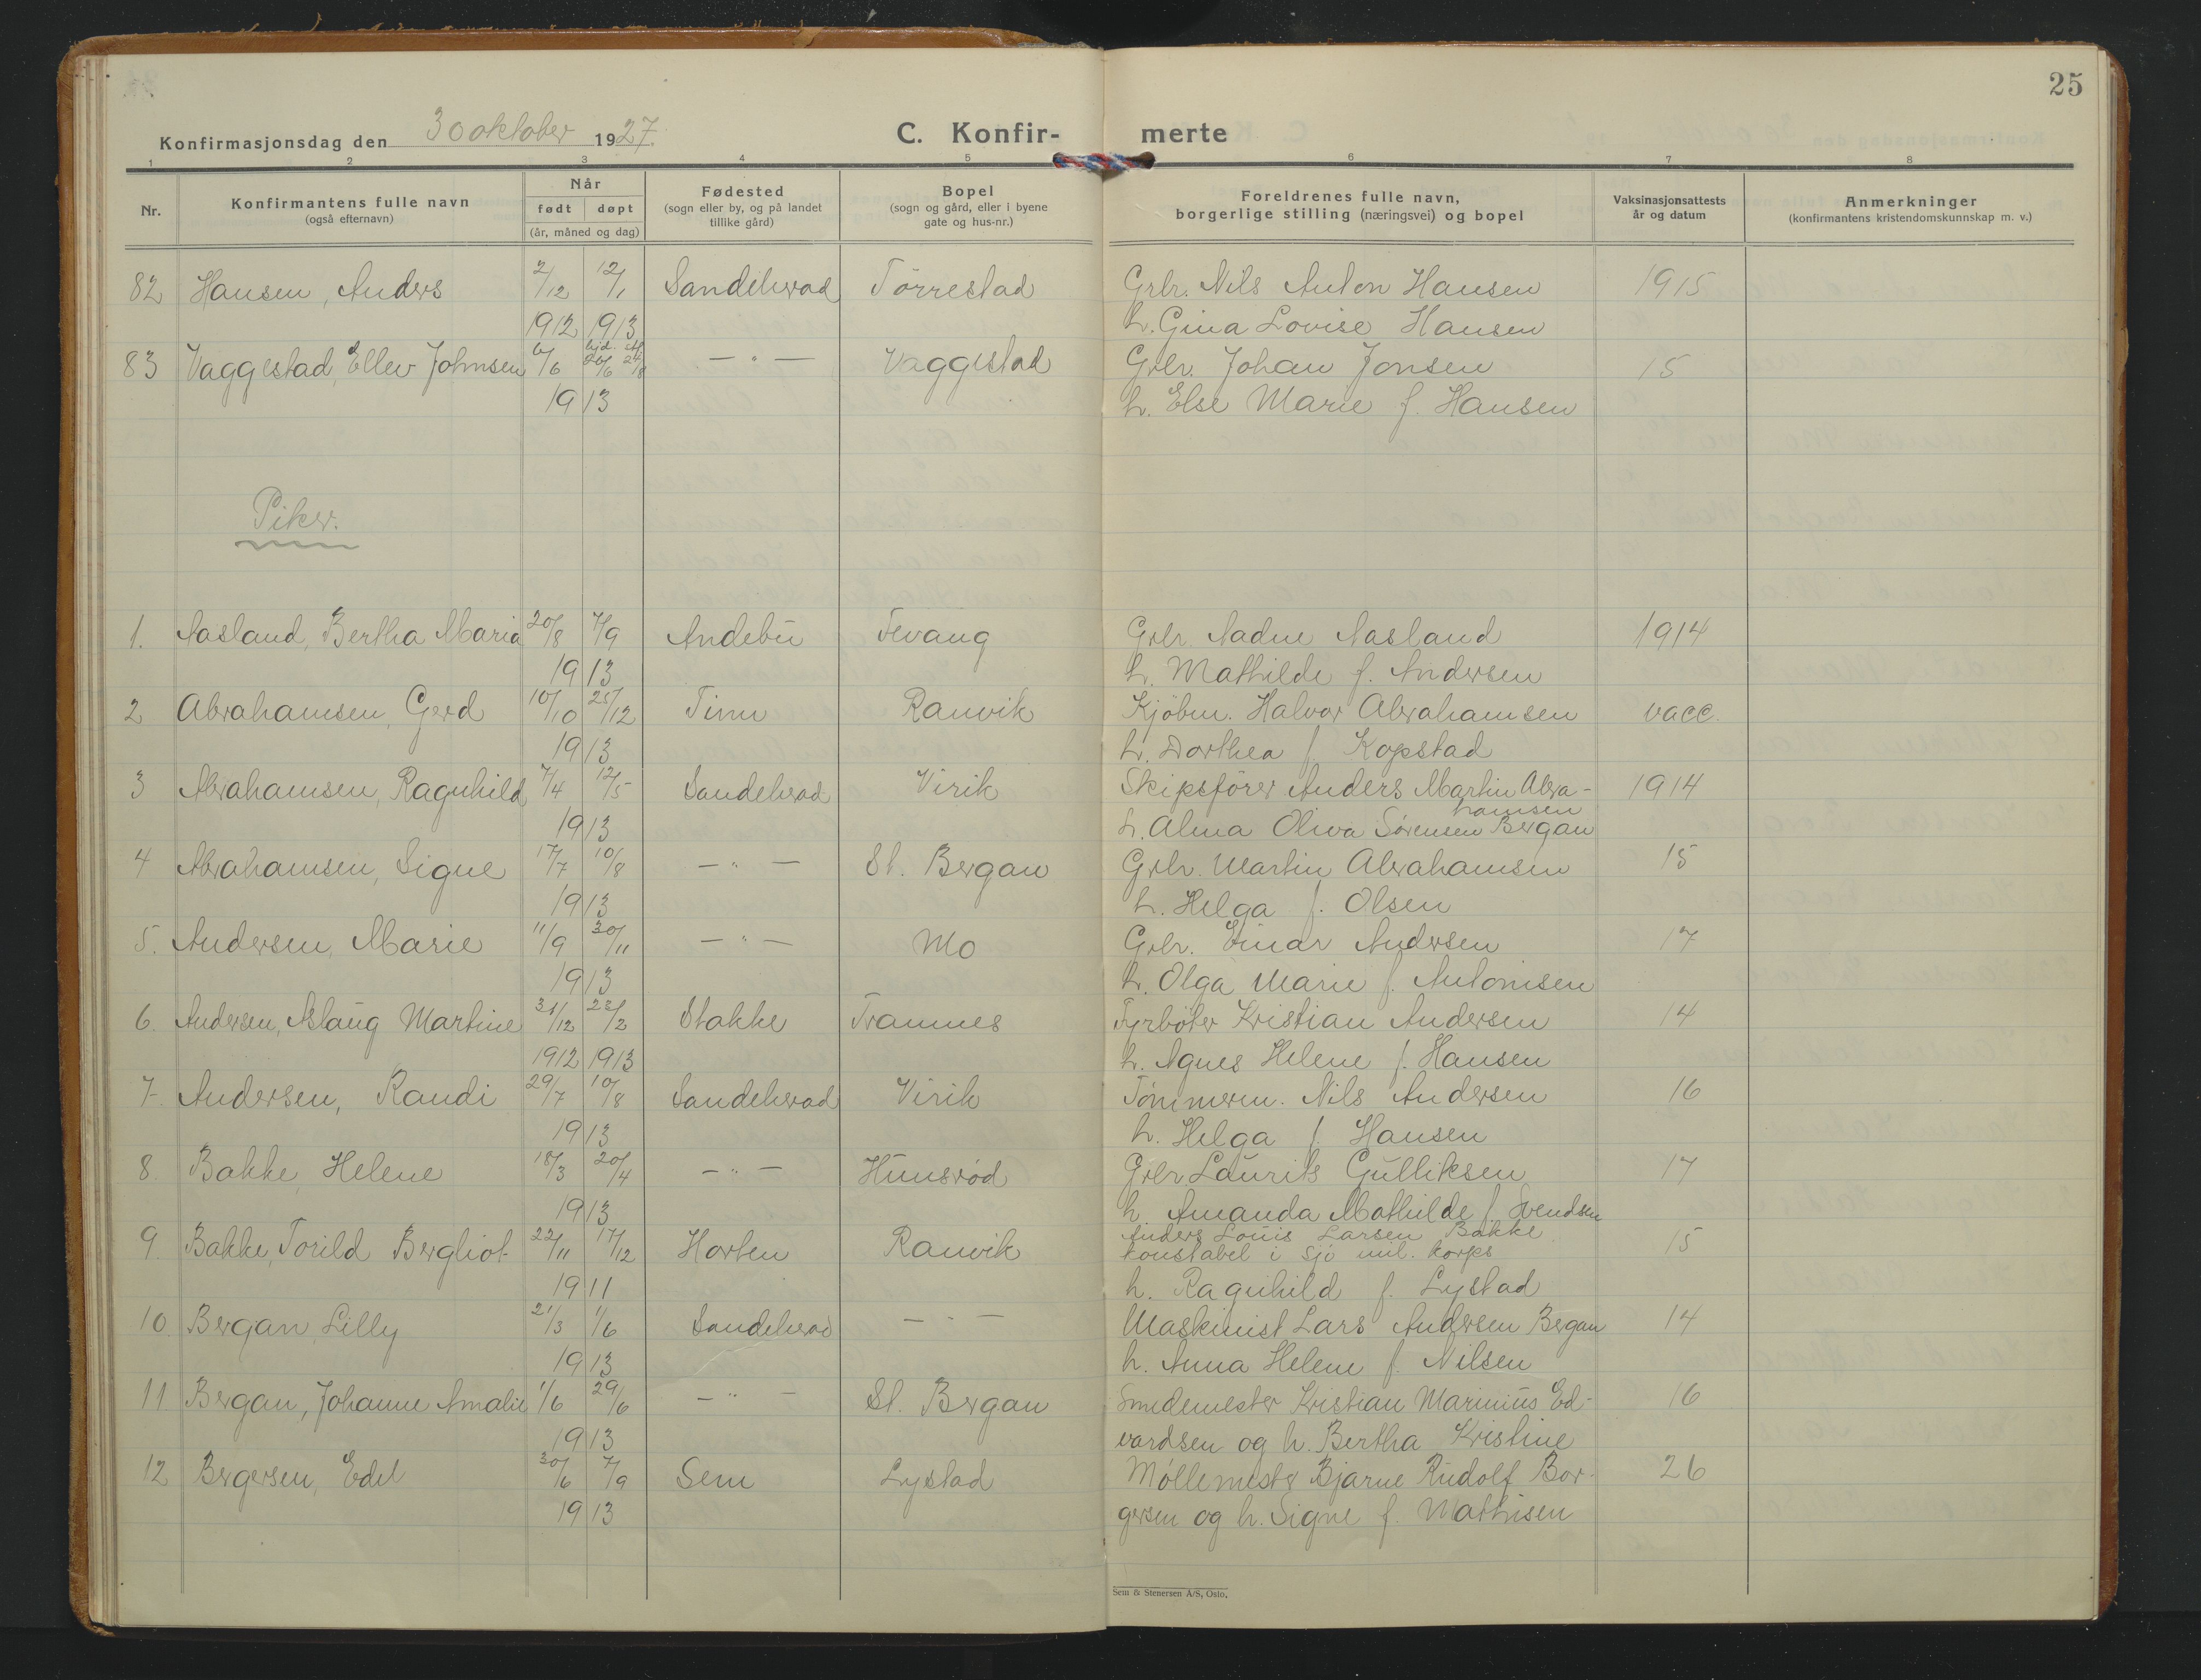 25
Konfirmasjonsdag den 30 oktober 1927. C. Konfir- merte
1 2 3 4 5 6 7 8
Nr. Konfirmantens fulle navn (også efternavn) Når født døpt (år, måned og dag) Fødested (sogn eller by, og på landet tillike gård) Bopel (sogn og gård, eller i byene gate og hus-nr.) Foreldrenes fulle navn, borgerlige stilling (næringsvei) og bopel Vaksinasjonsattests år og datum Anmerkninger (konfirmantens kristendomskunnskap m. v.)
82 Hansen, Anders 2/12 12/1 Sandeherad Tørrestad Grbr. Nils Anton Hansen 1915
1912 1913 h. Gina Lovise Hansen
83 Vaggestad, Ellev Johnsen 6/6 hjd. 20/6 24/8 — " — Vaggestad Grbr. Johan Jonsen 15
1913 h. Else Marie f. Hansen
Piker.
1. Aasland, Bertha Maria 20/8 7/9 Andebu Fevang Grbr. Aadne Aasland 1914
1913 h. Mathilde f. Andersen
2 Abrahamsen, Gerd 10/10 25/12 Tinn Ranvik Kjøbm. Halvor Abrahamsen vacc.
1913 h. Dorthea f. Kopstad
3 Abrahamsen, Ragnhild 7/4 12/5 Sandeherad Virik Skipsfører Anders Martin Abra- 1914
hamsen
1913 h. Alma Oliva Sørensen Bergan
4 Abrahamsen, Signe 17/7 10/8 — " — St. Bergan Grbr. Martin Abrahamsen 15
1913 h. Helga f. Olsen
5. Andersen, Marie 11/9 30/11 — " — Mo Grbr. Einar Andersen 17
1913 h. Olga Marie f. Antonisen
6. Andersen, Aslaug Martine 31/12 23/2 Stokke Framnes Fyrbøter Kristian Andersen 14
1912 1913 h. Agnes Helene f. Hansen
7. Andersen, Randi 29/7 10/8 Sandeherad Virik Tømmerm. Nils Andersen 16
1913 h. Helga f. Hansen
8. Bakke, Helene 18/3 20/4 — " — Hunsrød Grbr Laurits Gulliksen 17
1913 h. Amanda Mathilde f. Svendsen
9. Bakke, Torild Bergliot 22/11 17/12 Horten Ranvik Anders Louis Larsen Bakke 15
konstabel i sjø mil. korps
1911 h. Ragnhild f. Lystad
10. Bergan, Lilly 21/3 1/6 Sandeherad — " — Maskinist Lars Andersen Bergan 14
1913 h. Anna Helene f. Nilsen
11 Bergan, Johanne Amalie 1/6 29/6 — " — St. Bergan Smedemester Kristian Marinius Ed- 16
1913 vardsen og h. Bertha Kristine
12 Bergersen, Edel 30/6 7/9 Sem Lystad Møllemester Bjarne Rudolf Ber- 26
1913 gersen og h. Signe f. Mathisen
Sem & Stenersen A/S, Oslo.